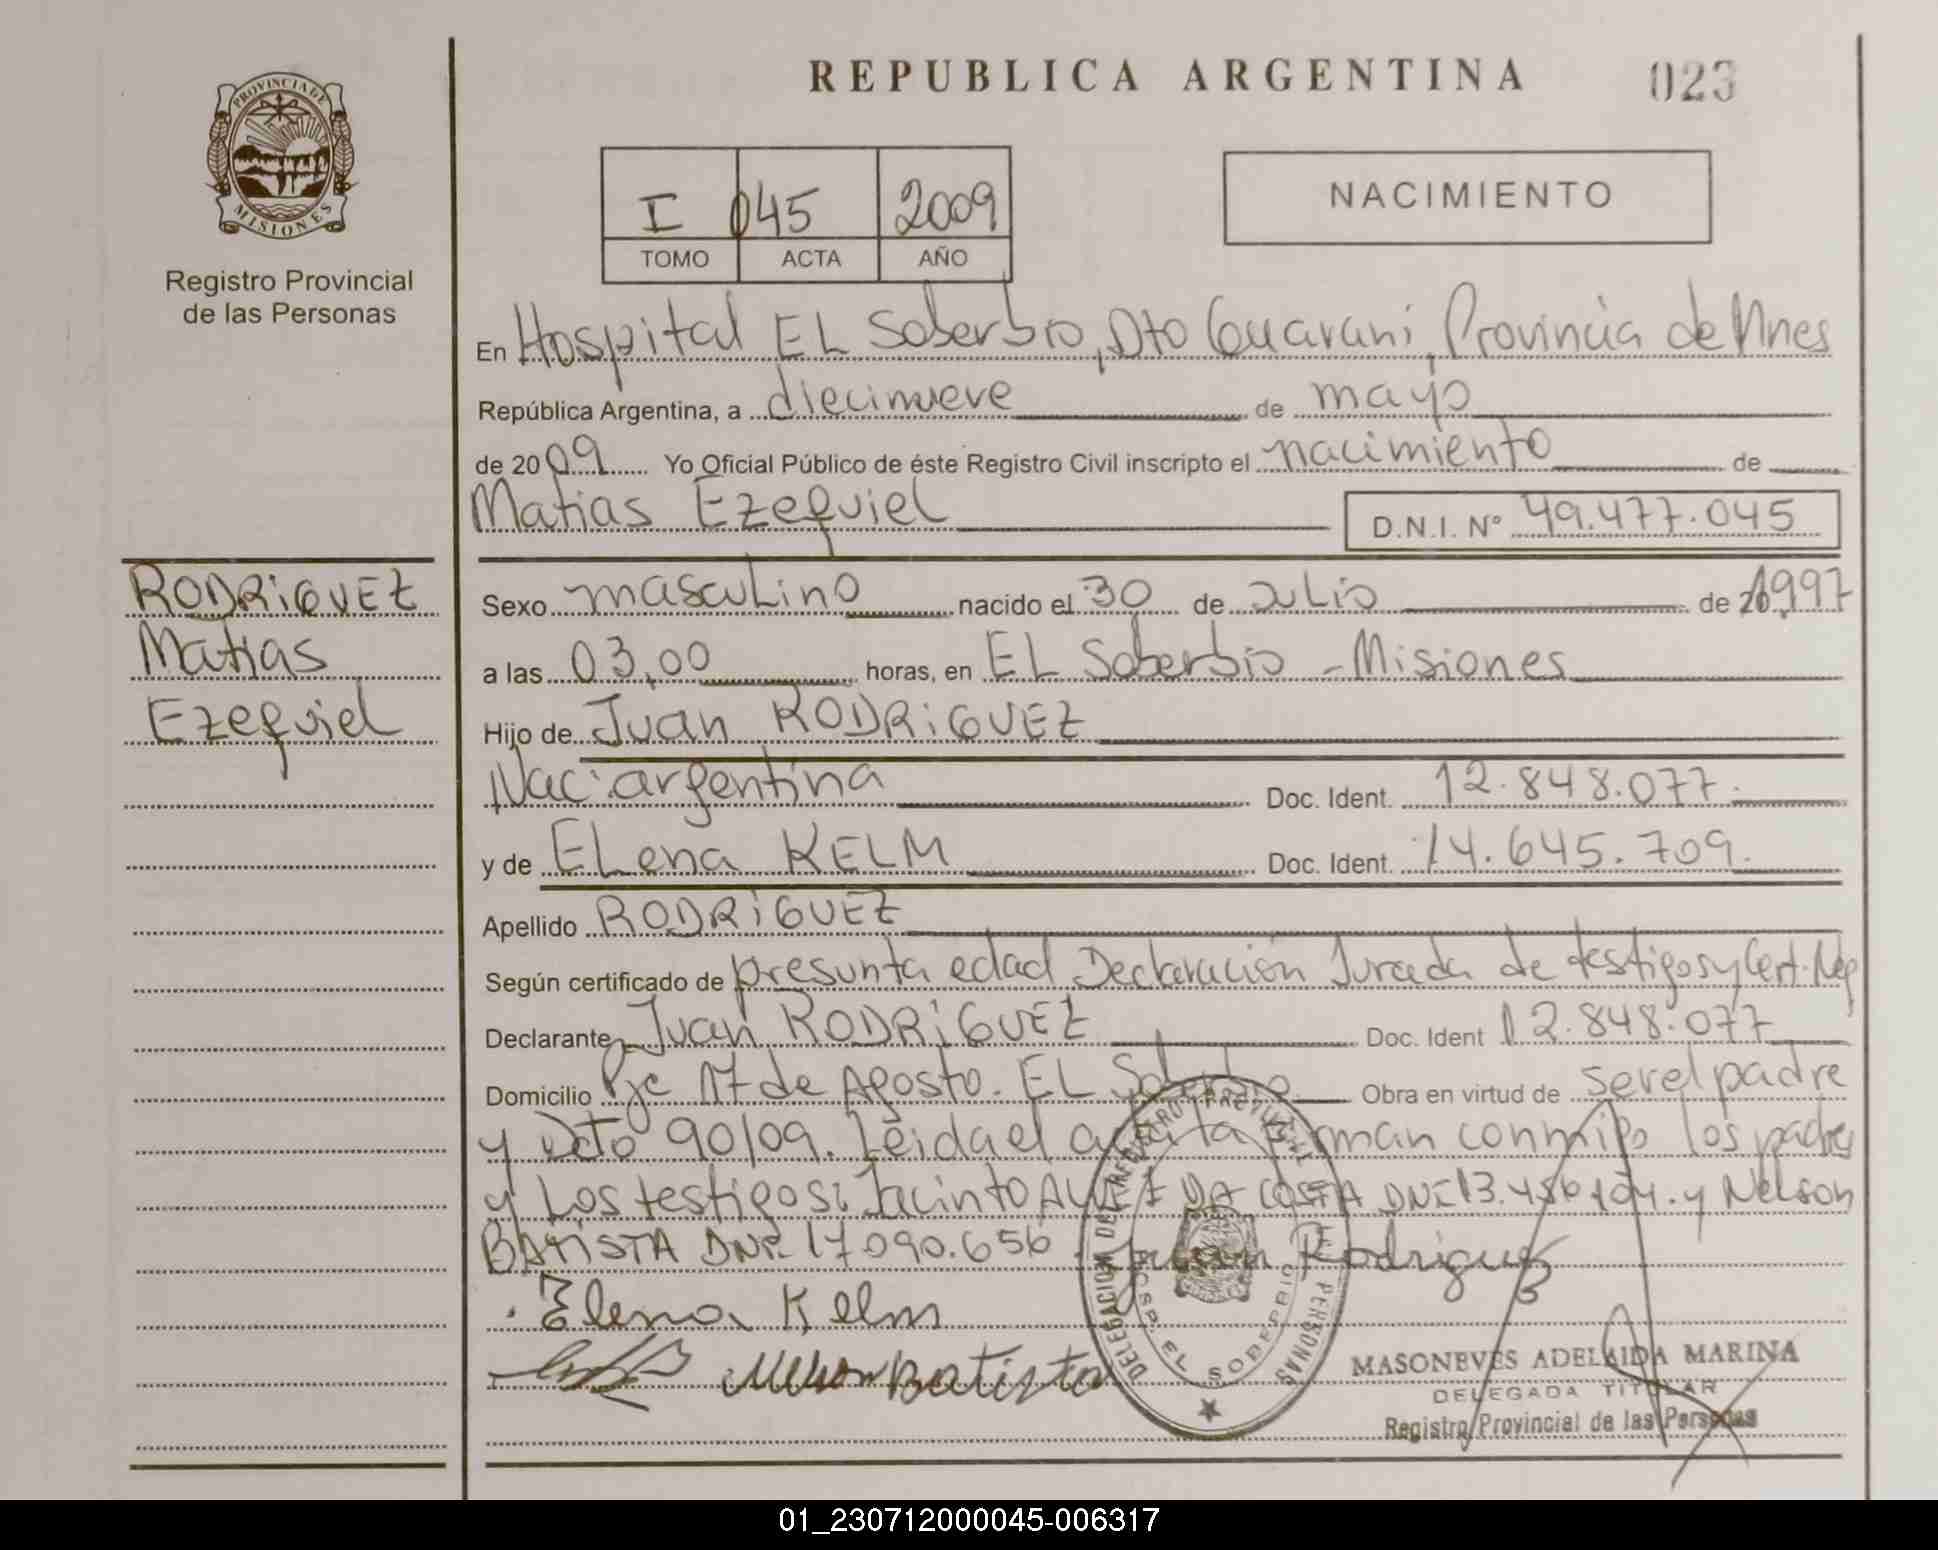 PROVINCIA DE
MISIONES
Registro Provincial
de las Personas
RODRIGUEZ
Matias
Ezequiel
REPUBLICA ARGENTINA 023
I 045 2009
TOMO ACTA AÑO
NACIMIENTO
En Hospital EL Soberbio, Dto Guarani, Provincia de Mnes
República Argentina, a diecinueve de mayo
de 2009 Yo Oficial Público de éste Registro Civil inscripto el nacimiento de
Matias Ezequiel D.N.I. Nº 49.477.045
Sexo masculino nacido el 30 de Julio de 1997
a las 03,00 horas, en EL Soberbio - Misiones
Hijo de Juan RODRIGUEZ
Nac: argentina Doc. Ident. 12.848.077.
y de ELena KELM Doc. Ident. 14.645.709.
Apellido RODRIGUEZ
Según certificado de presunta edad Declaración Jurada de testigos y Cert. Neg
Declarante Juan RODRIGUEZ Doc. Ident 12.848.077
Domicilio Pje 17 de Agosto. EL Soberbio Obra en virtud de ser el padre
y Dcto 90/09. Leida el acta firman conmigo los padres
y Los testigos: Jacinto DA COSTA DNI y Nelson
BATISTA DNI 17.090.656
Rodriguez
Elena Kelm
Nelson Batista
DELEGACION DEL REGISTRO PROVINCIAL DE PERSONAS
HOSP. EL SOBERBIO
MASONEVES ADELAIDA MARINA
DELEGADA TITULAR
Registro Provincial de las Personas
01_230712000045-006317